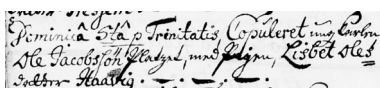 Dominica 5tâ p Trinitatis, Copuleret ung Karlen
Ole Jacobssön Platzet, med Pigen, Lisbet Oles
dotter Haavig.